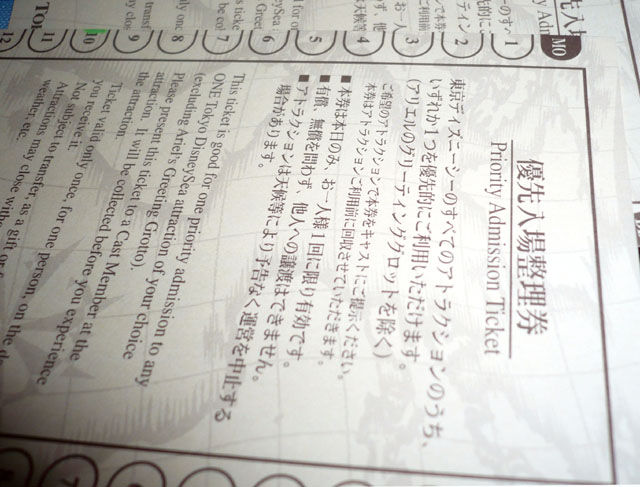 優先入場整理券
Priority Admission Ticket
東京ディズニーシーのすべてのアトラクションのうち、
いずれか1つを優先的にご利用いただけます。
(アリエルのグリーティンググロットを除く)
ご希望のアトラクションで本券をキャストにご提示ください。
本券はアトラクションご利用前に回収させていただきます。
■本券は本日のみ、お一人様1回に限り有効です。
■有償、無償を問わず、他人への譲渡はできません。
■アトラクションは天候等により予告なく運営を中止する
場合があります。
This ticket is good for one priority admission to any
ONE Tokyo DisneySea attraction of your choice
(excluding Ariel's Greeting Grotto).
Please present this ticket to a Cast Member at the
attraction. It will be collected before you experience
the attraction.
Ticket valid only once, for one person, on the
you receive it.
Not subject to transfer, as a gift or
Attractions may close with
weather, etc.
MO
1
2
3
4
5
6
7
8
9
10
11
12